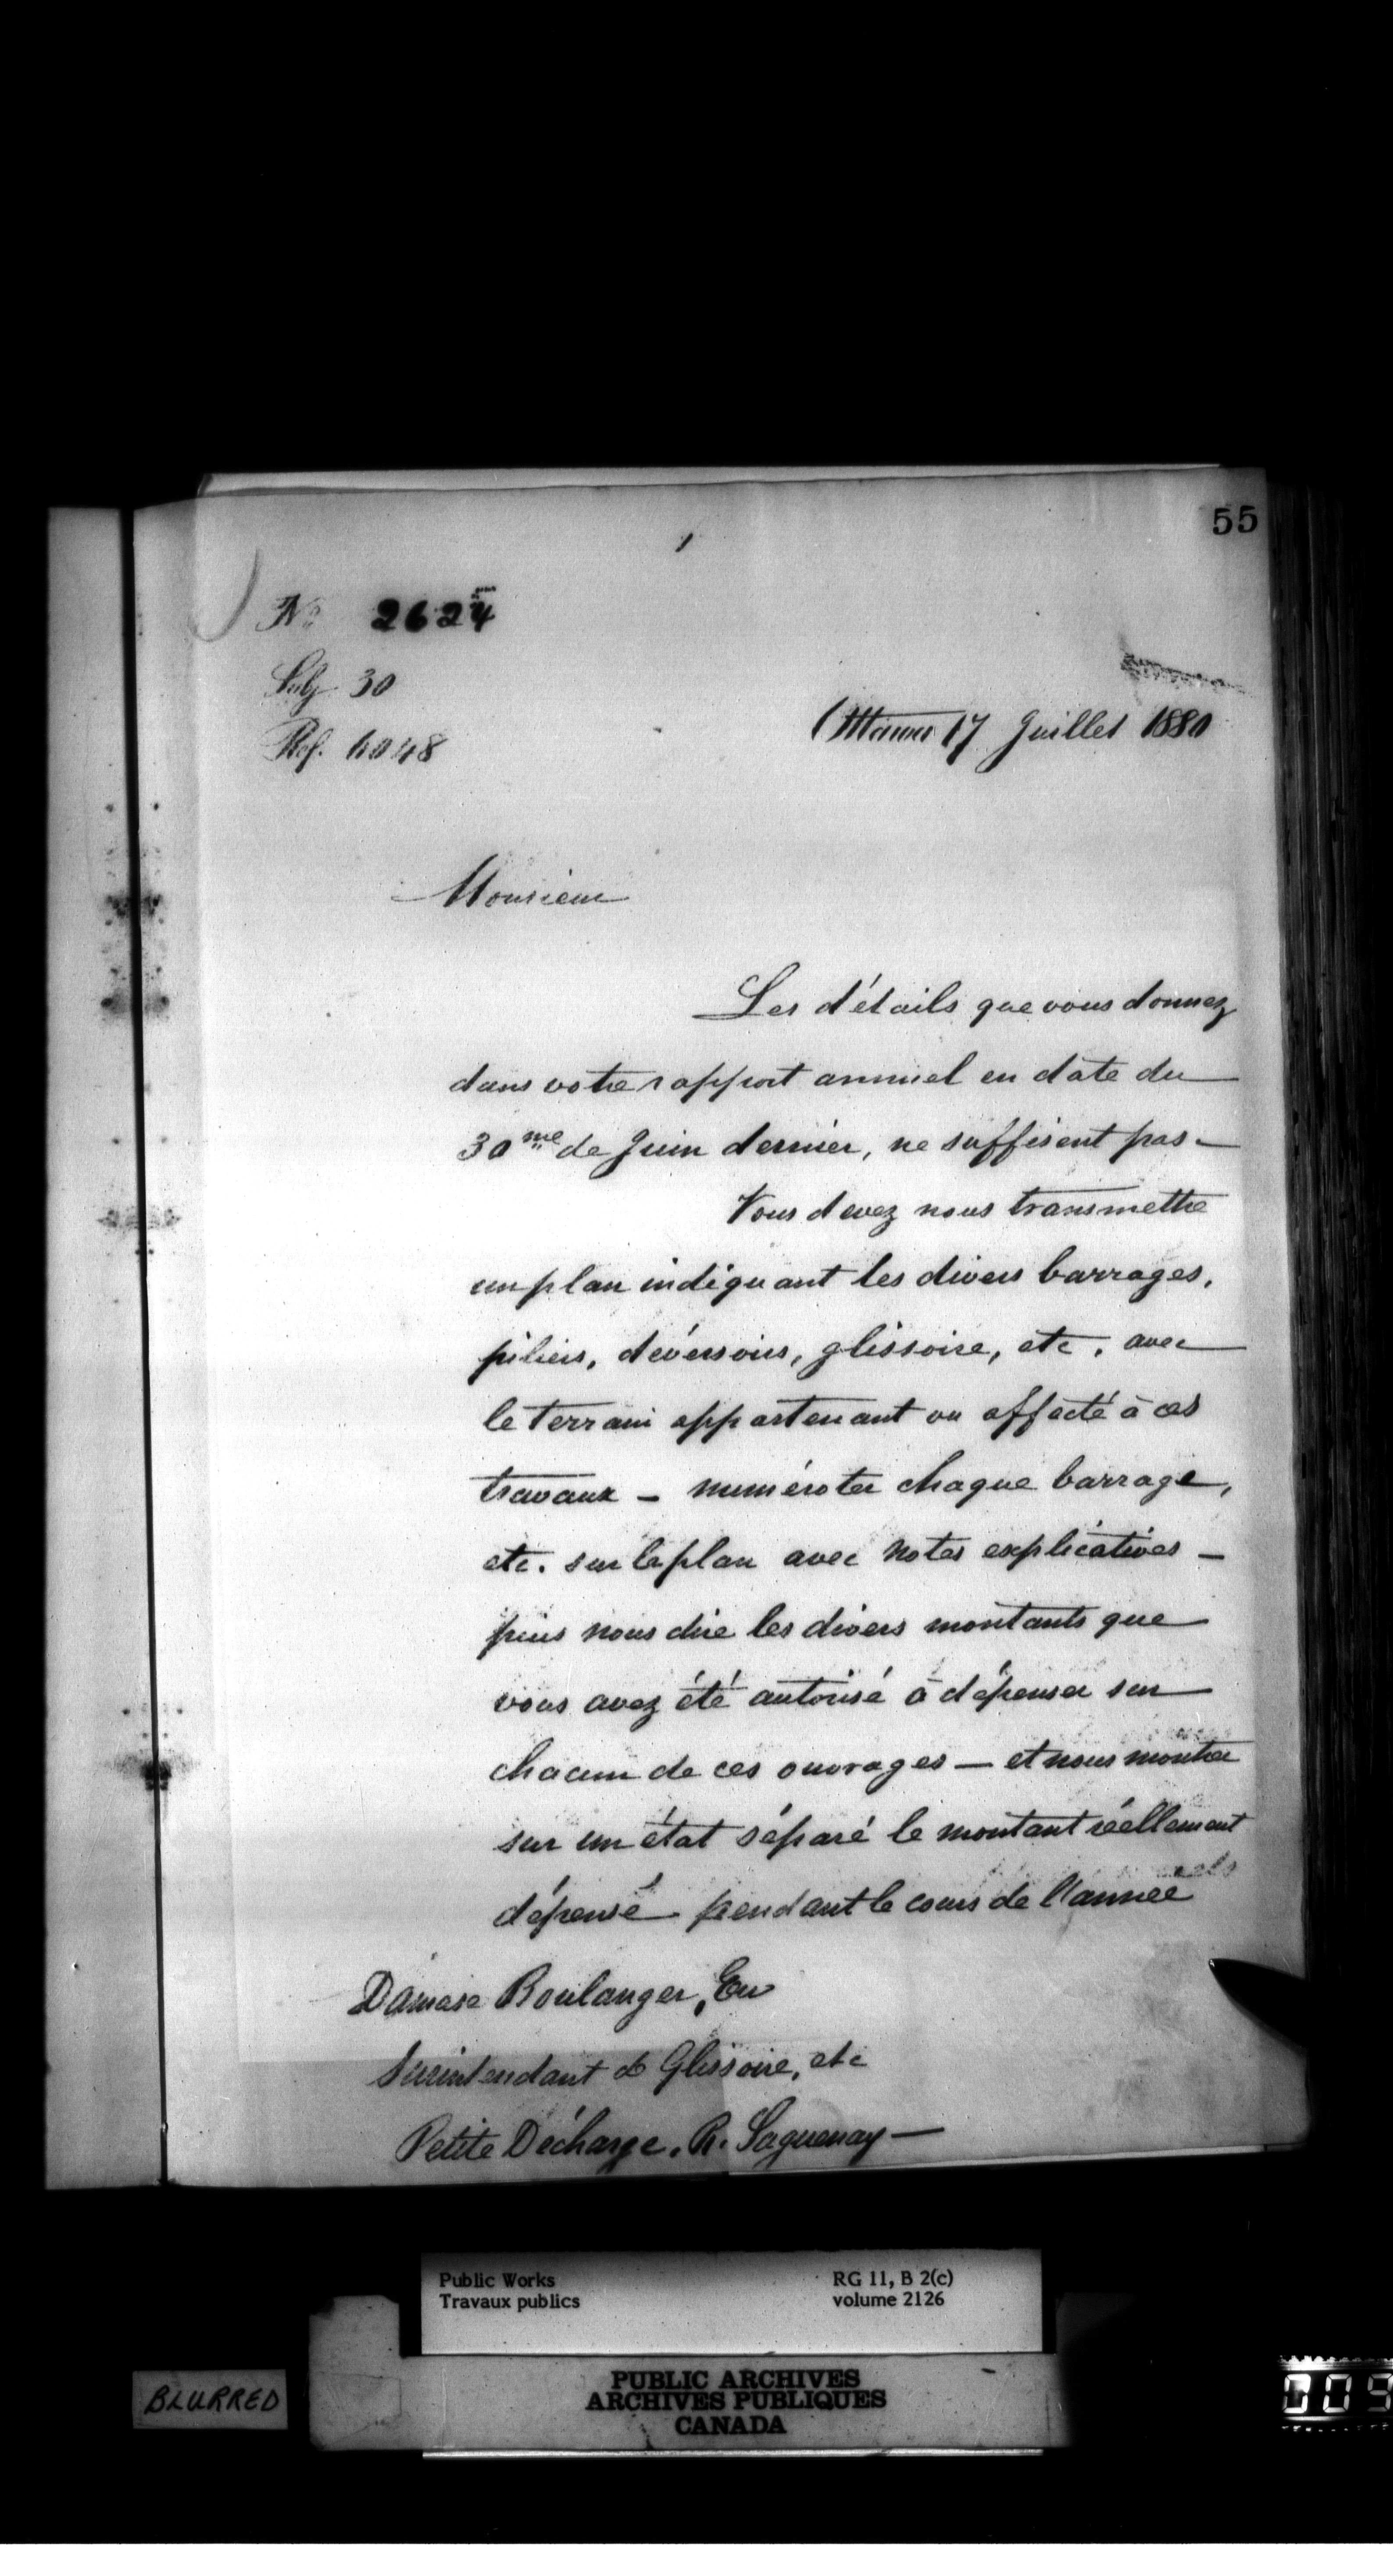 55
No 2624
Subj. 30
Ref.
Ottawa 17 Juillet 1880
Monsieur
Les détails que vous donnez
dans votre rapport annuel en date du
30me de Juin dernier, ne suffisent pas -
Vous devez nous transmettre
un plan indiquant les divers barrages,
piliers, déversoirs, glissoire, etc, avec
le terrain appartenant ou affecté à ces
travaux - numéroter chaque barrage,
etc. sur le plan avec notes explicatives -
puis nous dire les divers montants que
vous avez été autorisé à dépenser sur
chacun de ces ouvrages - et nous montrer
sur un état séparé le montant réellement
dépensé pendant le cours de l'année
Damase Boulanger, Ecr
Surintendant de Glissoire, etc
Petite Décharge, R. Saguenay -
Public Works RG 11, B 2(c)
Travaux publics volume 2126
PUBLIC ARCHIVES
ARCHIVES PUBLIQUES
CANADA
BLURRED
009